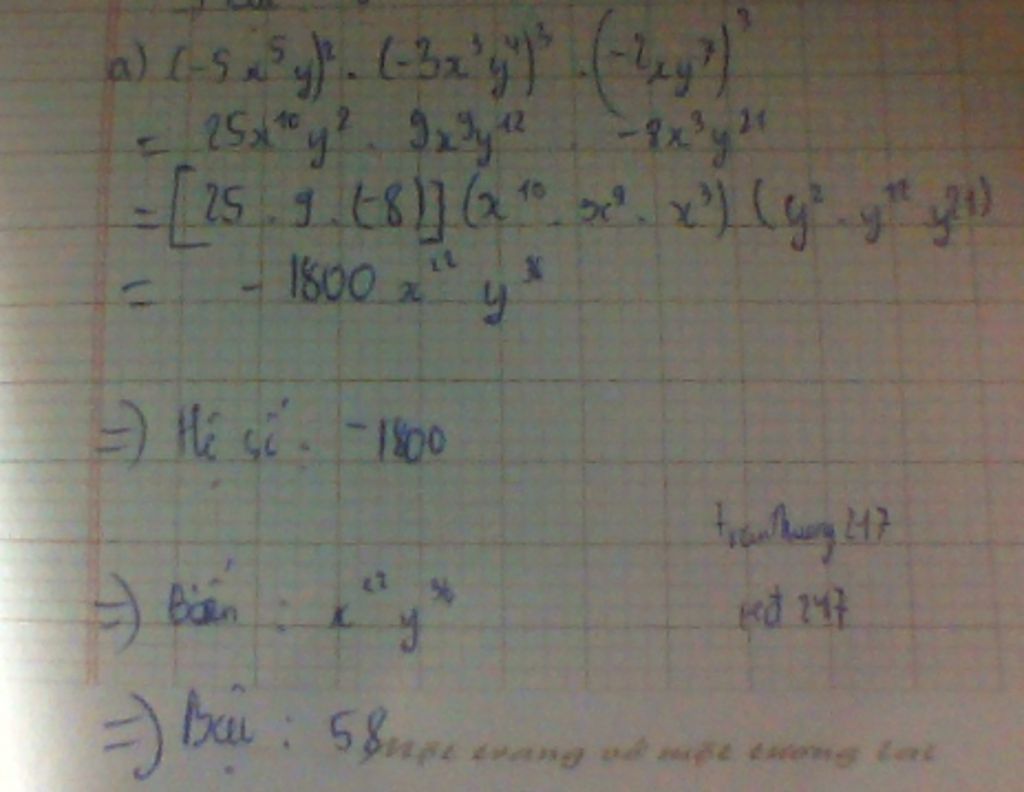 a) (-5x⁵y)² . (-3x³y⁴)³ . (-2xy⁷)³
= 25x¹⁰y² . 9x⁹y¹² . -8x³y²¹
= [25 . 9 . (-8)] (x¹⁰ . x⁹ . x³) (y² . y¹² y²¹)
= - 1800 x²² y³⁶
=) Hệ số : -1800
247
=) Biến : x²² y³⁶
247
=) Bậc : 58
Một trang vở một tương lai